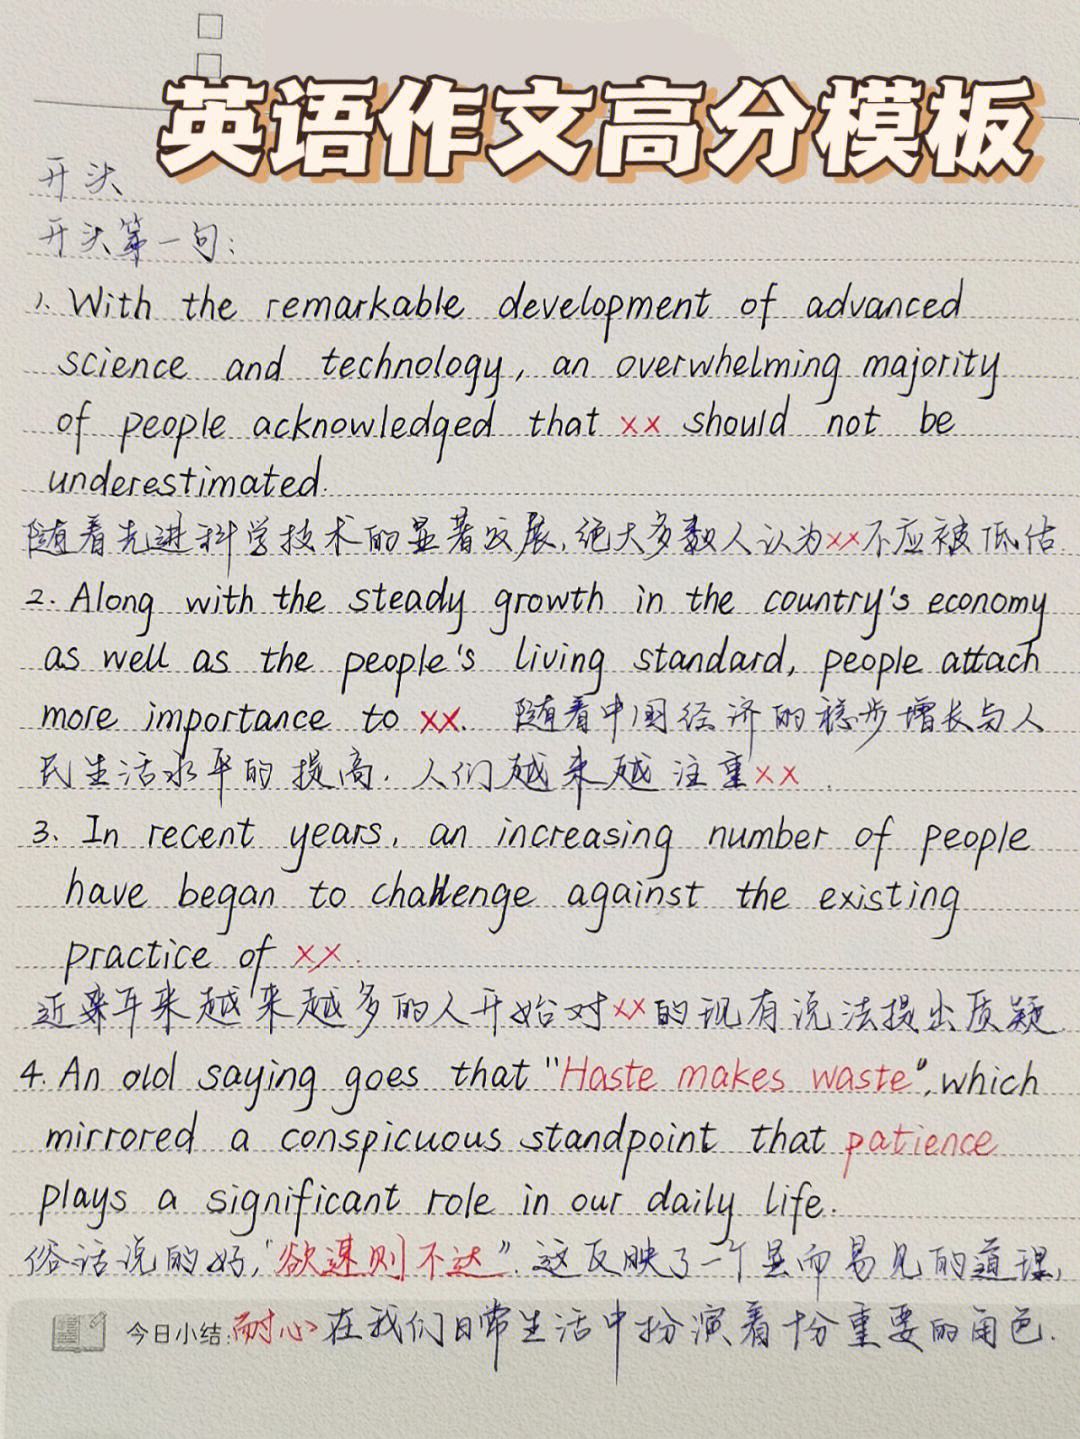 英语作文高分模板
开头
开头第一句:
1. With the remarkable development of advanced
science and technology, an overwhelming majority
of people acknowledged that xx should not be
underestimated.
随着先进科学技术的显著发展,绝大多数人认为xx不应被低估.
2. Along with the steady growth in the country's economy
as well as the people's living standard, people attach
more importance to xx. 随着中国经济的稳步增长与人
民生活水平的提高. 人们越来越注重xx.
3. In recent years, an increasing number of people
have began to challenge against the existing
practice of xx.
近年来越来越多的人开始对xx的现有说法提出质疑.
4. An old saying goes that "Haste makes waste", which
mirrored a conspicuous standpoint that patience
plays a significant role in our daily life.
俗话说的好,"欲速则不达". 这反映了一个显而易见的道理,
今日小结:耐心在我们日常生活中扮演着十分重要的角色.